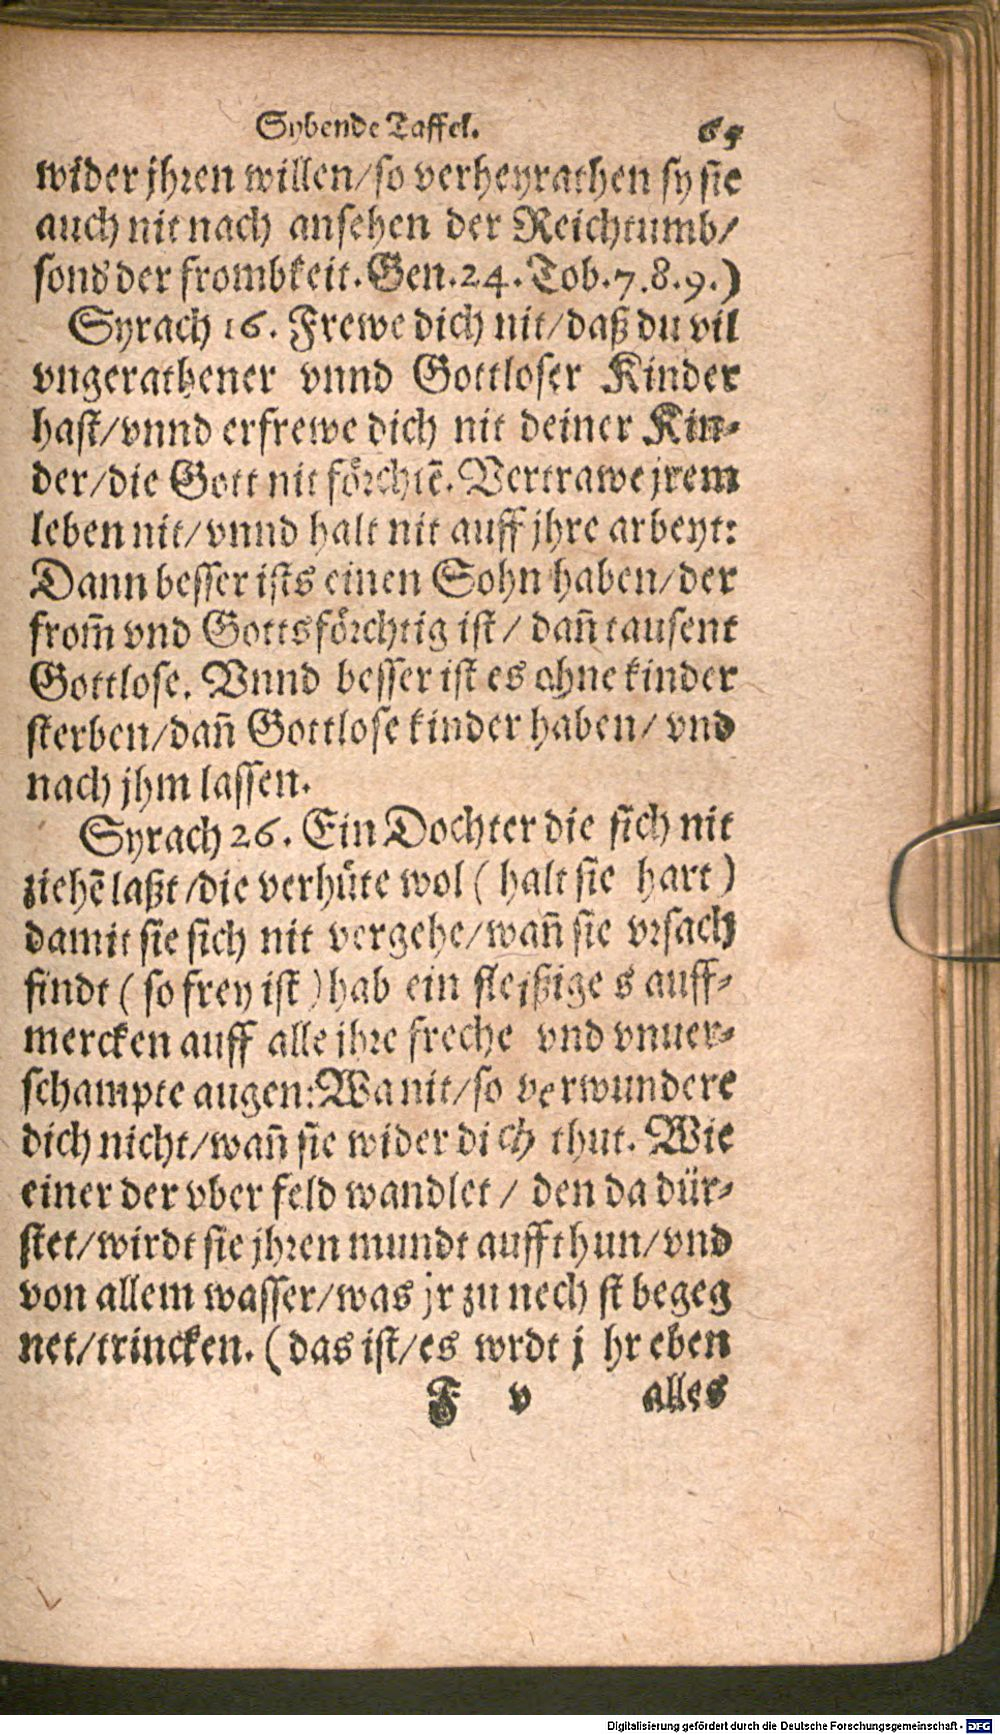 Sybende Taffel. 65
wider jhren willen/so verheyrathen sy sie
auch nit nach ansehen der Reichtumb/
sond der frombkeit. Gen. 24. Tob. 7.8.9.)
Syrach 16. Frewe dich nit/daß du vil
vngerathener vnnd Gottloser Kinder
hast/vnnd erfrewe dich nit deiner Kin-
der/die Gott nit förchtē. Vertrawe jrem
leben nit/vnnd halt nit auff jhre arbeyt:
Dann besser ists einen Sohn haben/der
from̄ vnd Gottsförchtig ist/ dan̄ tausent
Gottlose. Vnnd besser ist es ohne kinder
sterben/dan̄ Gottlose kinder haben/ vnd
nach jhm lassen.
Syrach 26. Ein Dochter die sich nit
ziehē laßt/die verhüte wol ( halt sie hart )
damit sie sich nit vergehe/wan̄ sie vrsach
findt ( so frey ist ) hab ein fleißige s auff-
mercken auff alle ihre freche vnd vnuer-
schampte augen: Wa nit/so verwundere
dich nicht/wan̄ sie wider dich thut. Wie
einer der vber feld wandlet / den da dür-
stet/wirdt sie jhren mundt auffthun/vnd
von allem wasser/was jr zu nech st begeg
net/trincken. ( das ist/es wrdt j hr eben
F v alles
Digitalisierung gefördert durch die Deutsche Forschungsgemeinschaft - DFG